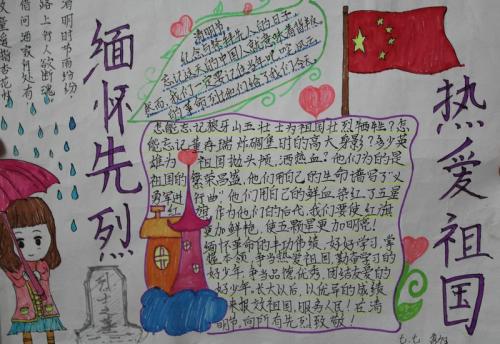 清明时节雨纷纷，
路上行人欲断魂
借问酒家何处有，
牧童遥指杏花村
缅怀先烈
清明节
纪念与祭拜先人的日子，
忘记过去的中国人就意味着背叛
然而，我们一定要记住当年
的革命烈士他们给了我们今天
怎能忘记狼牙山五壮士为祖国壮烈牺牲？怎
能忘记董存瑞炸碉堡时的高大身影？多少英
雄为 祖国抛头颅，洒热血？他们为的是
祖国的繁荣昌盛，他们用自己的生命谱写了"义
勇军进行曲"他们用自己的鲜血染红了五星
红旗 作为他们的后代，我们要使红旗
更加鲜艳，使五颗星更加明亮！
缅怀革命的丰功伟绩，好好学习，掌
握本领，争当热爱祖国，勤奋学习的
好少年，争当品德优秀，团结友爱的
好少年，长大以后，以优异的成绩
来报效祖国，服务人民！在清
明节，向所有先烈致敬！
热爱祖国
烈士之墓